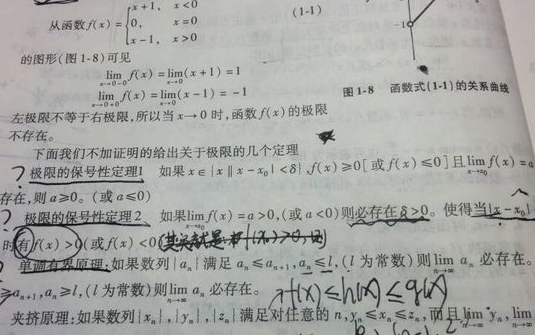 从函数 f(x) = { x+1, x<0
0, x=0
x-1, x>0
(1-1)
-1
的图形(图 1-8) 可见
lim f(x) = lim(x+1) = 1
x→0-0 x→0
lim f(x) = lim(x-1) = -1
x→0+0 x→0
图 1-8 函数式(1-1)的关系曲线
左极限不等于右极限,所以当 x→0 时,函数 f(x) 的极限
不存在。
下面我们不加证明的给出关于极限的几个定理
? 极限的保号性定理1 如果 x∈{x‖x-x₀|<δ},f(x)≥0[或 f(x)≤0]且 lim f(x) = a
x→x₀
存在,则 a≥0。(或 a≤0)
? 极限的保号性定理 2 如果 lim f(x) = a>0,(或 a<0)则必存在 δ>0。使得当|x-x₀|
x→x₀
时有 f(x)>0(或 f(x)<0
? 单调有界原理:如果数列{aₙ}满足 aₙ≤aₙ₊₁,aₙ≤l,(l 为常数)则 lim aₙ 必存在。
n→∞
≥aₙ₊₁,aₙ≥l,(l 为常数)则 lim aₙ 必存在。
n→∞
f(x)≤h(x)≤g(x)
夹挤原理:如果数列{xₙ},{yₙ},{zₙ}满足对任意的 n,yₙ≤xₙ≤zₙ,而且 lim yₙ, lim
n→∞